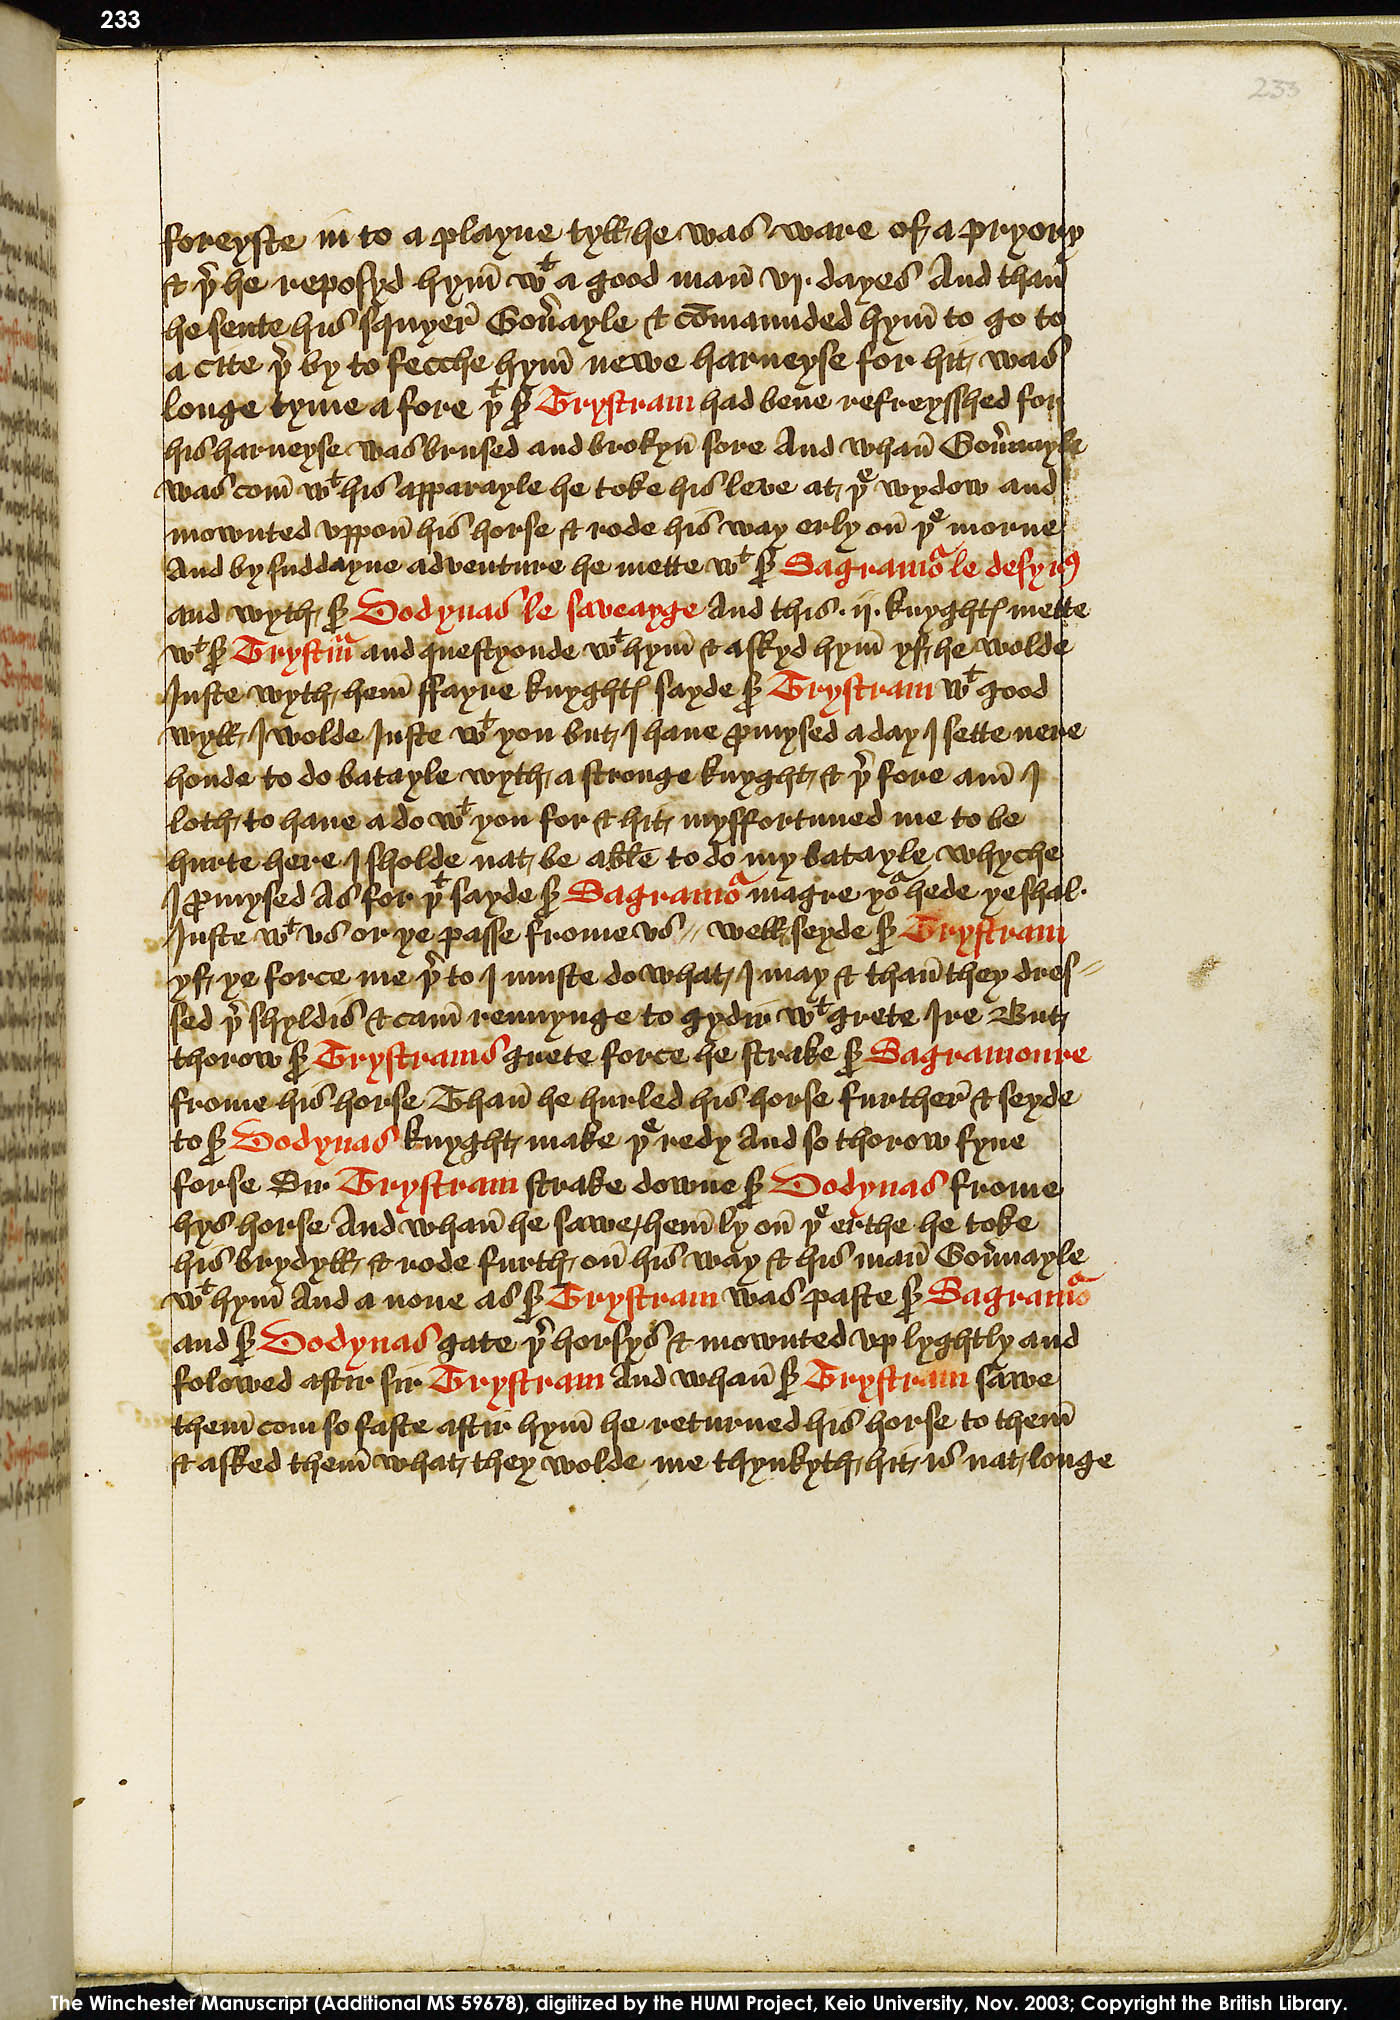 233
233
foreyste in to a playne tyll he was ware of a pryory
& þr he reposyd hym̄ wt a good man̄ vj. dayes And than̄
he sente his squyer Gou̾nayle & cōmaunded hym̄ to go to
a cite þr by to fecche hym̄ newe harneyse for hit was
longe tyme a fore þt sr̄ Trystram had bene refreysshed for
his harneyse was brused and brokyn̄ sore And whan̄ Gou̾nayle
was com̄ wt his apparayle he toke his leve at þe wydow and
mownted vppon̄ his horse & rode his way erly on̄ þe morne
And by suddayne adventure he mette wt sr̄ Sagramor le desyrus
and wyth sr̄ Dodynas le saveayge And this .ij. knyghtes mette
wt sr̄ Trystram and questyonde wt hym̄ & askyd hym̄ yf he wolde
Juste wyth hem̄ ffayre knyghtes sayde sr̄ Trystram wt good
wyll I wolde Juste wt you but I have ꝓmysed a day I sette nere
honde to do batayle wyth a stronge knyght & þr fore am̄ I
loth to have a do wt you for & hit myssfortuned me to be
hurte here I sholde nat be able to do my batayle whyche
I ꝓmysed As for þt sayde sr̄ Sagramor magre yor hede ye shal.
Juste wt vs or ye passe frome vs // well seyde sr̄ Trystram
yf ye force me þr to I muste do what I may & than̄ they dres//
sed þr shyldis & cam̄ rennynge to gydir wt grete Ire But
thorow sr̄ Trystrams grete force he strake sr̄ Sagramoure
frome his horse Than̄ he hurled his horse further & seyde
to sr̄ Dodynas knyght make þe redy And so thorow fyne
forse Sir Trystram strake downe sr̄ Dodynas frome
hys horse And whan̄ he sawe hem̄ ly on̄ þe erthe he toke
his brydyll & rode furth on̄ his way & his man̄ Gou̾nayle
wt hym̄ And a none as sr̄ Trystram was paste sr̄ Sagramor
and sr̄ Dodynas gate þr horsys & mownted vp lyghtly and
folowed aftir sir Trystram And whan̄ sr̄ Trystram sawe
them̄ com so faste aftir hym̄ he returned his horse to them̄
& asked them̄ what they wolde me thynkyth hit is nat longe
The Winchester Manuscript (Additional MS 59678), digitized by the HUMI Project, Keio University, Nov. 2003; Copyright the British Library.